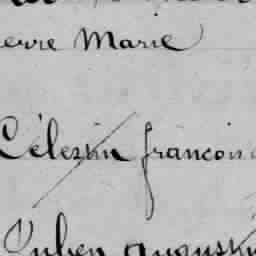 erre Marie
Célestin francois
Ruben augustin